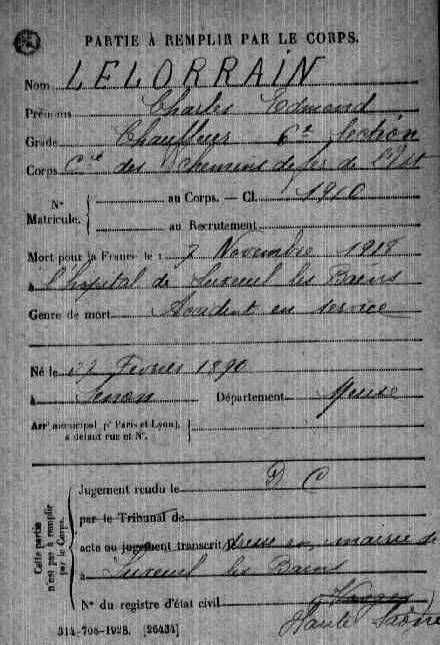 PARTIE À REMPLIR PAR LE CORPS.
Nom LELORRAIN
Prénoms Charles Edmond
Grade Chauffeur 6e Section
Corps Cie des Chemins de fer de l'Est
N° Matricule. au Corps. — Cl. 1910
au Recrutement
Mort pour la France le : 7 Novembre 1918
à l'hôpital de Luxeuil les Bains
Genre de mort Accident en service
Né le 22 Fevrier 1890
à Senon Département Meuse
Arrt municipal (pr Paris et Lyon), à défaut rue et N°.
Cette partie n'est pas à remplir par le Corps.
Jugement rendu le D C
par le Tribunal de
acte ou jugement transcrit en mairie de
à Luxeuil les Bains
N° du registre d'état civil Vosges
Haute Saône
314-708-1928. [26434]